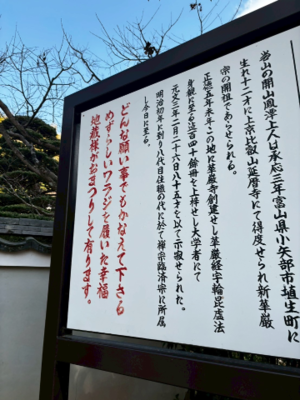 当山の開山鳳潭上人は承応三年富山県小矢部市埴生町に
生れ十二才にて上京比叡山延暦寺にて得度せられ新華厳
宗の開祖であらせられる。
正徳五年末年この地に華厳寺創建せし華厳経宗輪昆盧法
身観に至る迄百四十餘冊を上梓せし大学者にて
元文三年二月二十六日八十五才を以て示寂せられた。
明治初年に到り八代目住職の代に於て禅宗臨済宗に所属
し今日に至る。
どんな願い事でもかなえて下さる
めずらしいワラジを履いた幸福
地蔵様がおまつりして有ります。